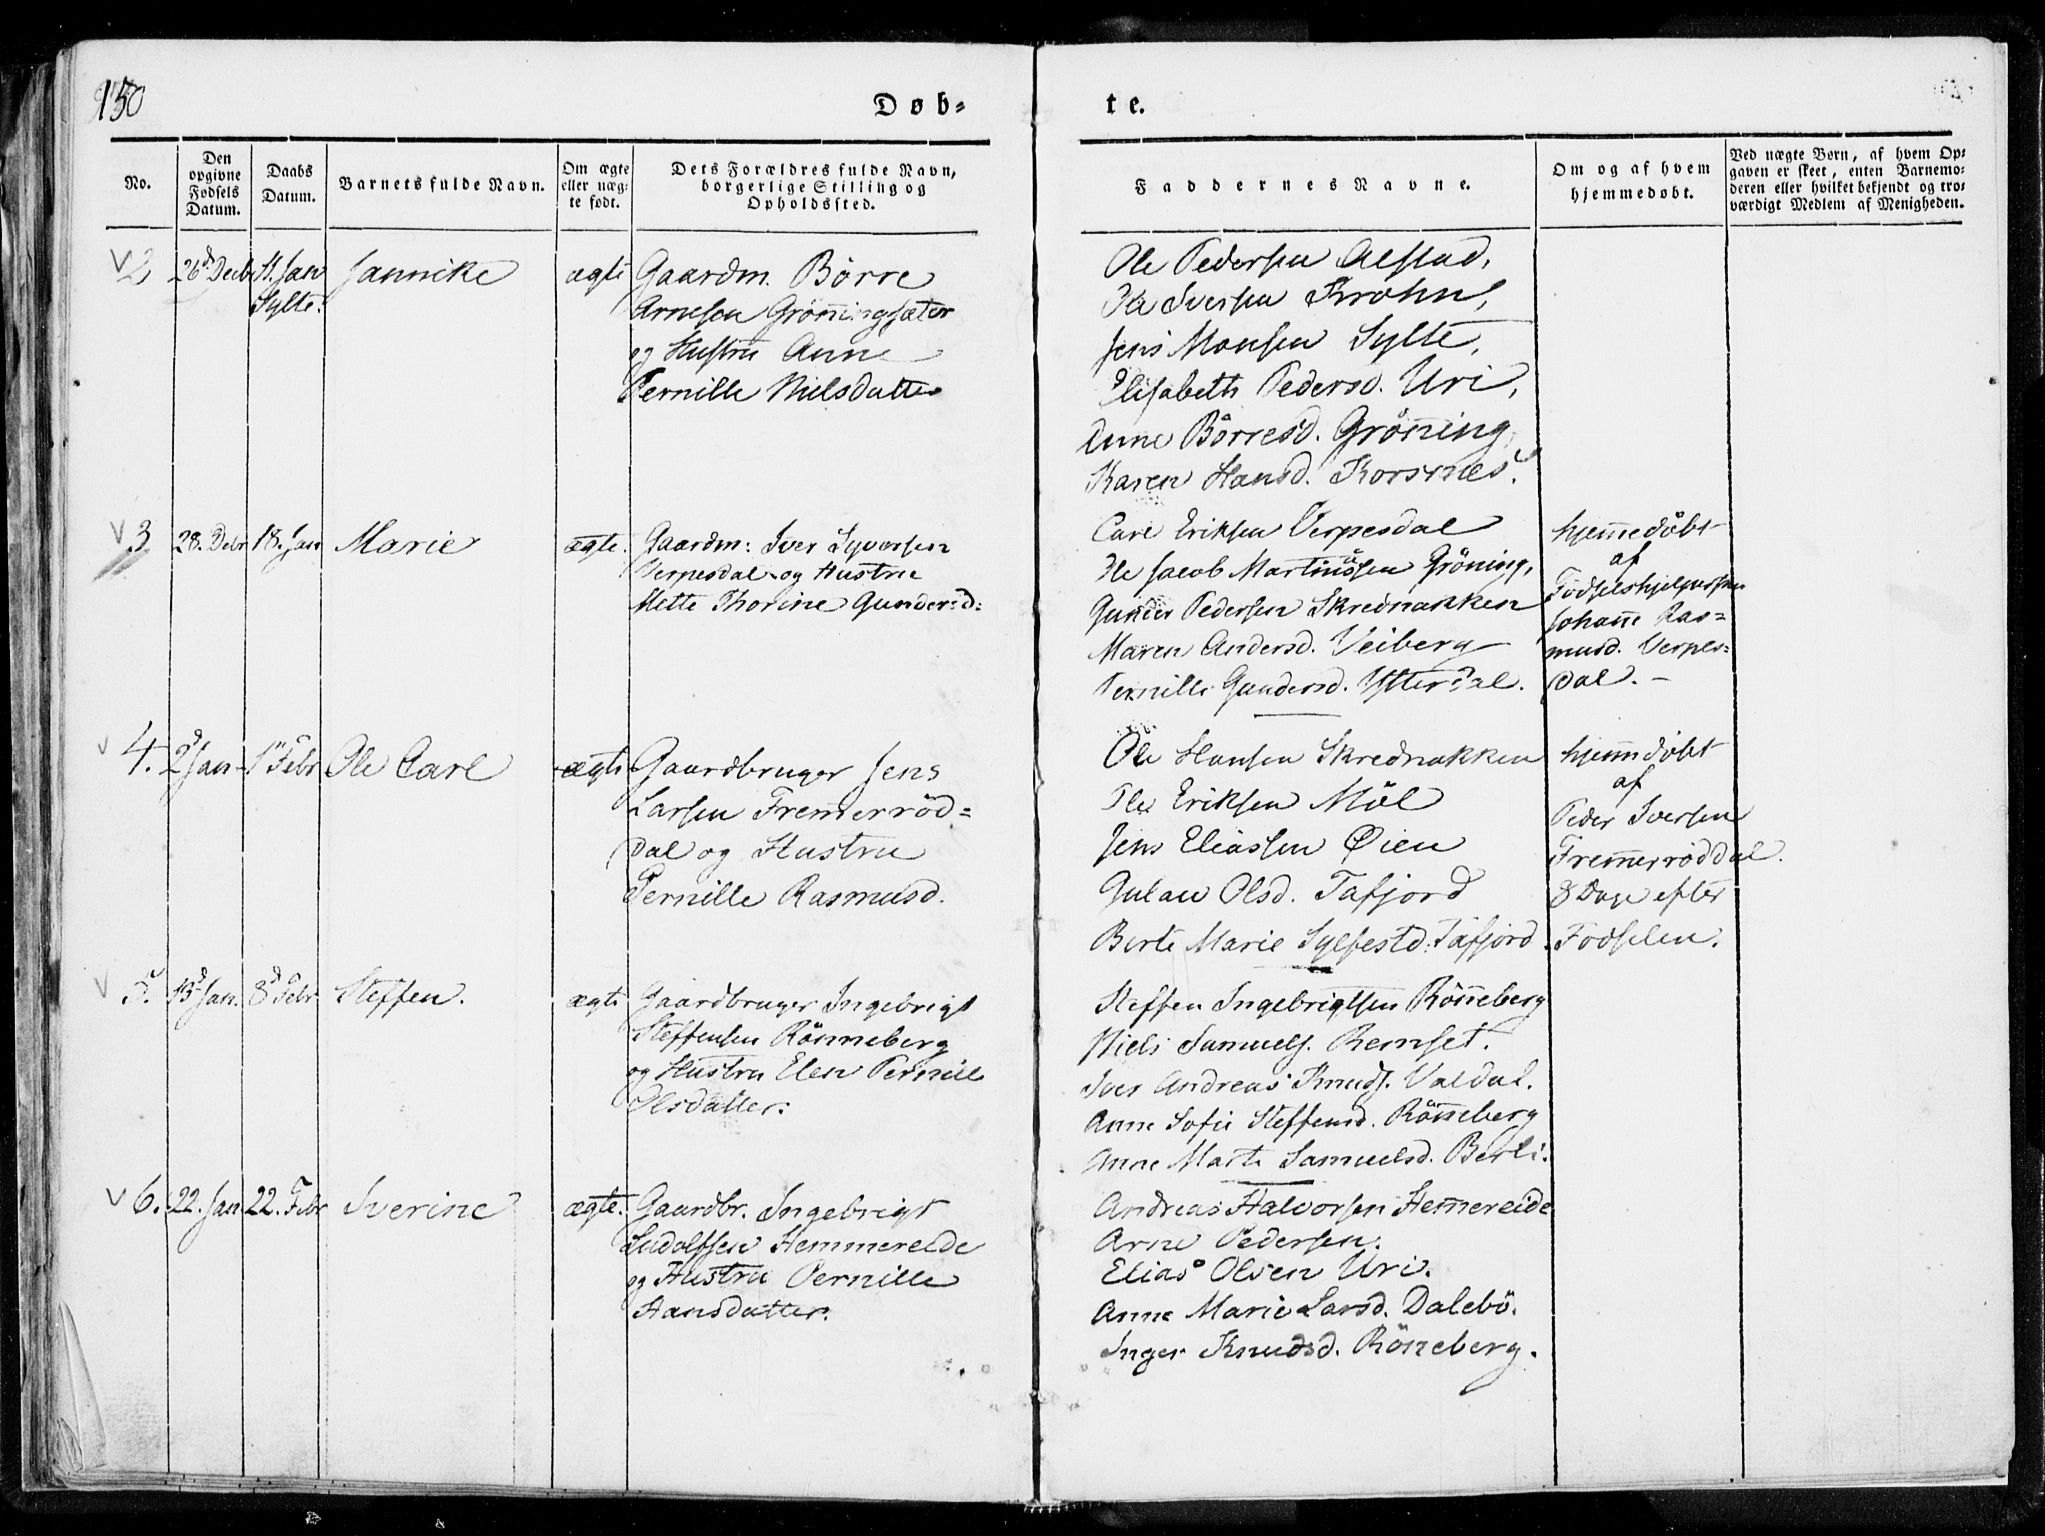 150
Døb-
te.
No.
Den opgivne Fødsels Datum.
Daabs Datum.
Barnets fulde Navn.
Om ægte eller uægte født.
Dets Forældres fulde Navn, borgerlige Stilling og Opholdssted.
Faddernes Navne.
Om og af hvem hjemmedøbt.
Ved uægte Børn, af hvem Opgaven er skeet, enten Barnemoderen eller hvilket bekjendt og troværdigt Medlem af Menigheden.
2 26d Decb. 11. Jan Jannike ægte Gaardm. Börre
Sylte.
Arnesen Grönningsæter
og Hustru Anne
Pernille Nielsdatter
Ole Pedersen Alstad,
Iversen Krohn,
Jens Monsen Sylte,
Elisabeth Pedersd. Uri,
Anne Börresd. Gröning,
Karen Hansd. Korsnes.
3 28. Debr 18. Jan Marie ægte. Gaardm: Iver Syversen
Verpesdal og Hustru
Mette Thorine Gundersd:
Carl Eriksen Verpesdal
Ole Jacob Martinussen Gröning,
Gunder Pedersen Skrednakken
Maren Andersd. Veiberg
Pernille Gundersd. Ytterdal.
hjem̅edöbt
af
Födselshjelpersken
Johan̅e Ras-
musd. Verpes-
dal. -
4. 2d Jan 1ste Febr Ole Carl ægte Gaardbruger Jens
Larsen Frem̅erröd-
dal og Hustru
Pernille Rasmusd.
Ole Hansen Skrednakken
Ole Eriksen Möl
Jens Eliassen Øien
Gulau Olsd. Tafjord
Berte Marie Sylfestd. Tafjord.
hjem̅döbt
af
Peder Iversen
Frem̅erröddal.
8 Dage efter
Fødselen.
5. 13d Jan. 8d Febr. Steffen. ægte Gaardbruger Ingebrigt
Steffensen Rönneberg
og Hustru Elen Pernille
Olsdatter.
Steffen Ingebrigtsen Rön̅eberg
Niels Samuels. Remset.
Iver Andreas Knuds. Valdal.
Anne Sofie Steffensd. Rön̅eberg
Anne Marte Samuelsd. Berli.
6. 22. Jan 22. Febr Iverine ægte. Gaardbr. Ingebrigt
Ludolfsen Hemmereide
og Hustru Pernille
Hansdatter.
Andreas Halvorsen Hem̅ereide
Arne Pedersen.
Elias Olsen Uri.
Anne Marie Larsd. Dalebö.
Inger Knudsd. Rön̅eberg.